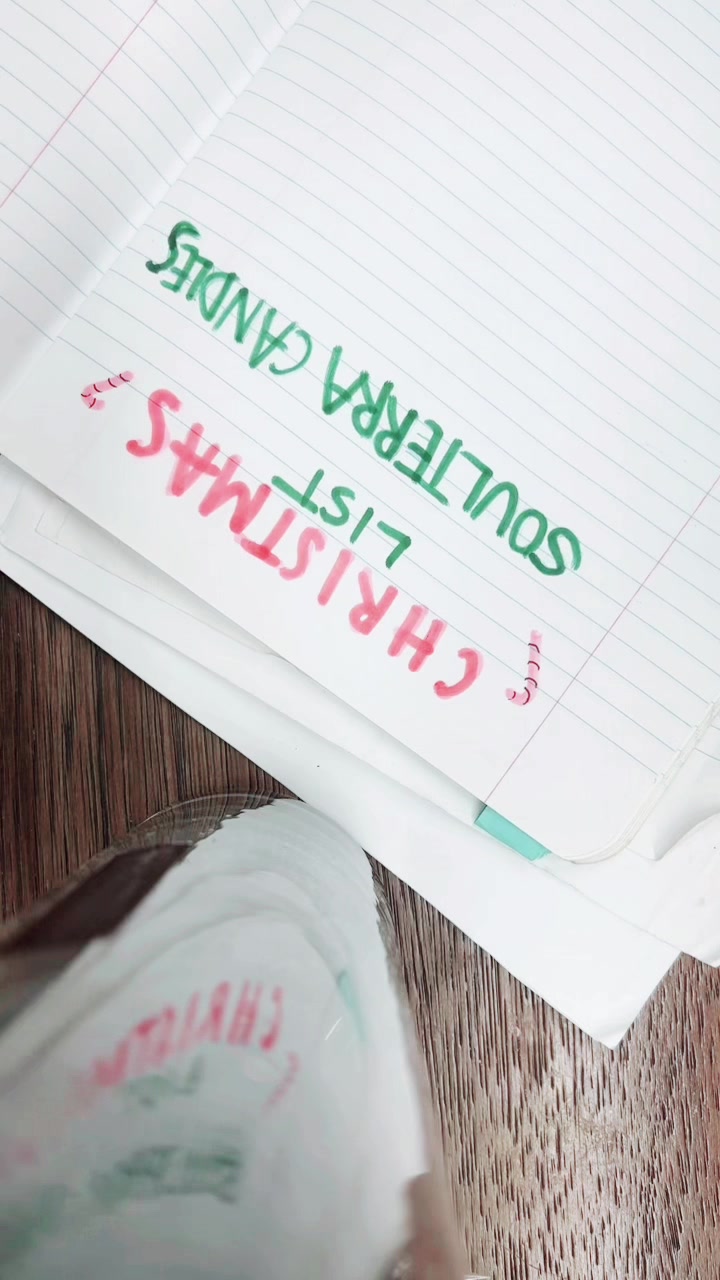 CHRISTMAS
LIST
SOULTERRA CANDLES